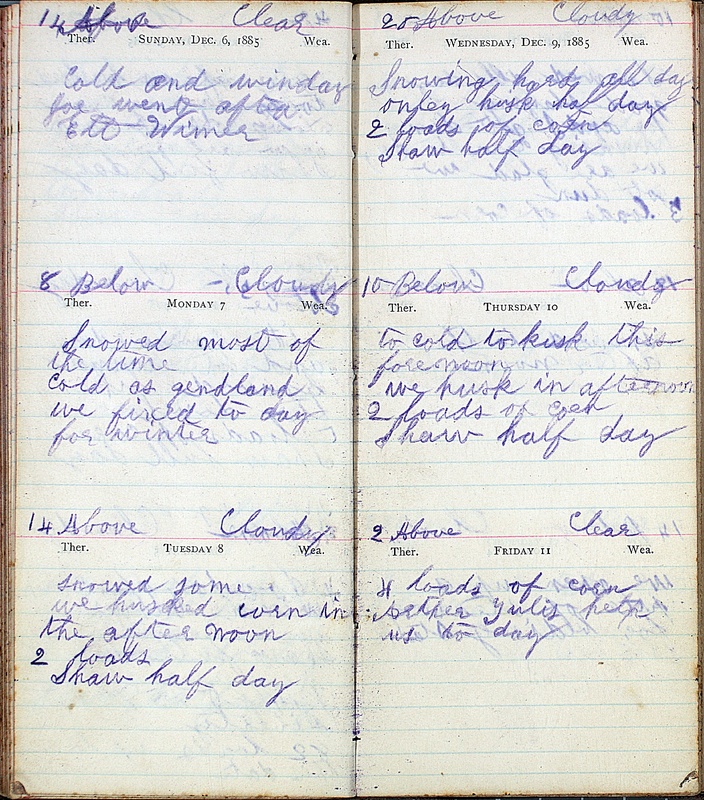 14 Above Clear
Ther. SUNDAY, DEC. 6, 1885 Wea.
Cold and winday
Joe went after
Ett Wimer
8 Below - Cloudy
Ther. MONDAY 7 Wea.
Snowed most of
the time
Cold as
we fixed to day
for winter
14 Above Cloudy
Ther. TUESDAY 8 Wea.
snowed some
we husked corn in
the after noon
2 loads
Shaw half day
20 Above Cloudy
Ther. WEDNESDAY, DEC. 9, 1885 Wea.
Snowing hard all day
onley husk half day
2 loads of corn
Shaw half day
10 Below Cloudy
Ther. THURSDAY 10 Wea.
to cold to husk this
forenoon
we husk in afternoon
2 loads of corn
Shaw half day
2 Above Clear
Ther. FRIDAY 11 Wea.
4 loads of corn
Arther help
us to day